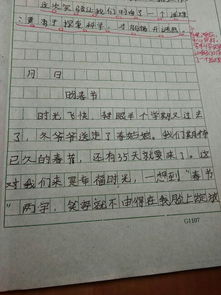 这次实验让我们明白了一个道理
要善于探索科学，才能揭开谜题。
月 日
盼春节
时光飞快，转眼半个学期又过去
了，冬爷爷送走了春姑娘。我们期待
已久的春节，还有35天就要来了。这
对我们来是幸福时光，一想到“春节
”两字，笑容就不由得在我脸上绽放
G1107